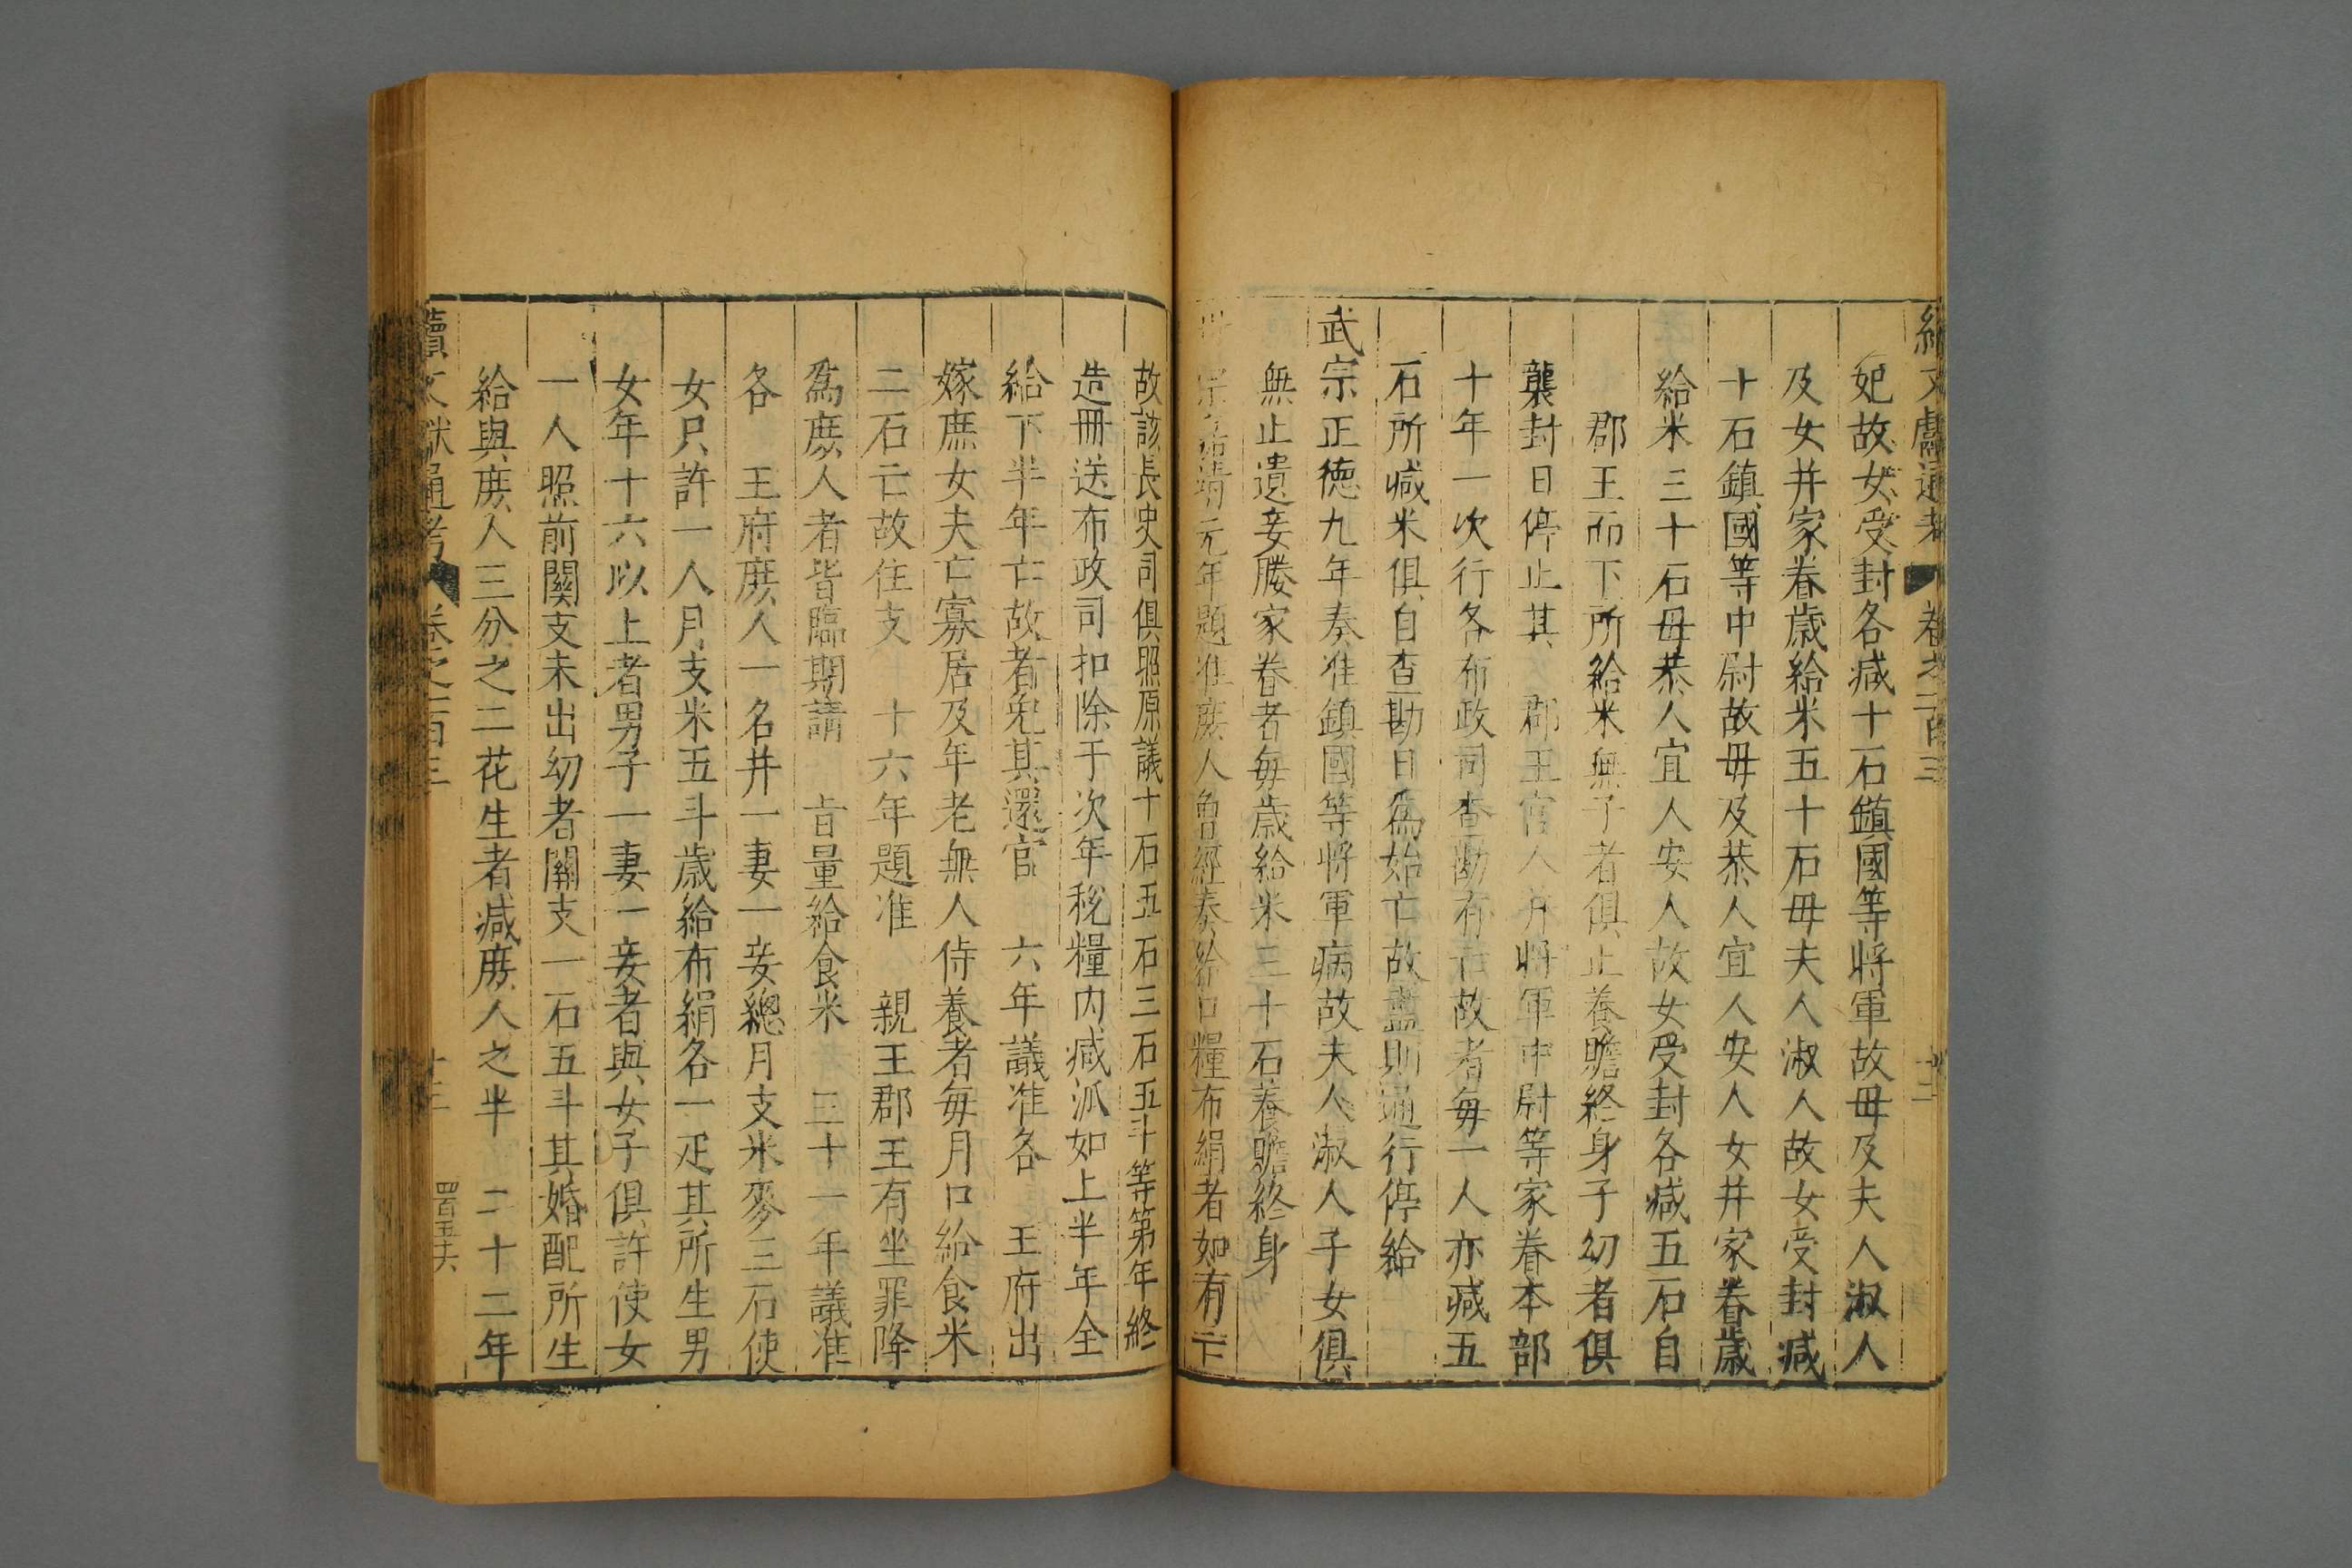 續文獻通考 卷之二百三 十二
妃故女受封各减十石鎮國等將軍故毋及夫人淑人
及女并家眷歲給米五十石毋夫人淑人故女受封减
十石鎮國等中尉故毋及恭人宜人安人女并家眷歲
給米三十石毋恭人宜人安人故女受封各减五石自
郡王而下所給米無子者俱止養贍終身子幼者俱
襲封日停止其 郡王宫人并將軍中尉等家眷本部
十年一次行各布政司查勘有亡故者每一人亦减五
石所减米俱自查勘日為始亡故盡則通行停給
武宗正德九年奏准鎮國等將軍病故夫人淑人子女俱
無止遺妾媵家眷者每歲給米三十石養贍終身
世宗嘉靖元年題准庶人魯經奏給口糧布絹者如有亡
故該長史司俱照原議十石五石三石五斗等第年終
造冊送布政司扣除于次年稅糧内减派如上半年全
給下半年亡故者免其還官 六年議准各 王府出
嫁庶女夫亡寡居及年老無人侍養者每月口給食米
二石亡故住支 十六年題准 親王郡王有坐罪降
為庶人者皆臨期請 旨量給食米 三十一年議准
各 王府庶人一名并一妻一妾總月支米麥三石使
女只許一人月支米五斗歲給布絹各一疋其所生男
女年十六以上者男子一妻一妾者與女子俱許使女
一人照前關支未出幼者關支一石五斗其婚配所生
給與庶人三分之二花生者减庶人之半 二十二年
續文獻通考 卷之二百三 十三 四百五十六